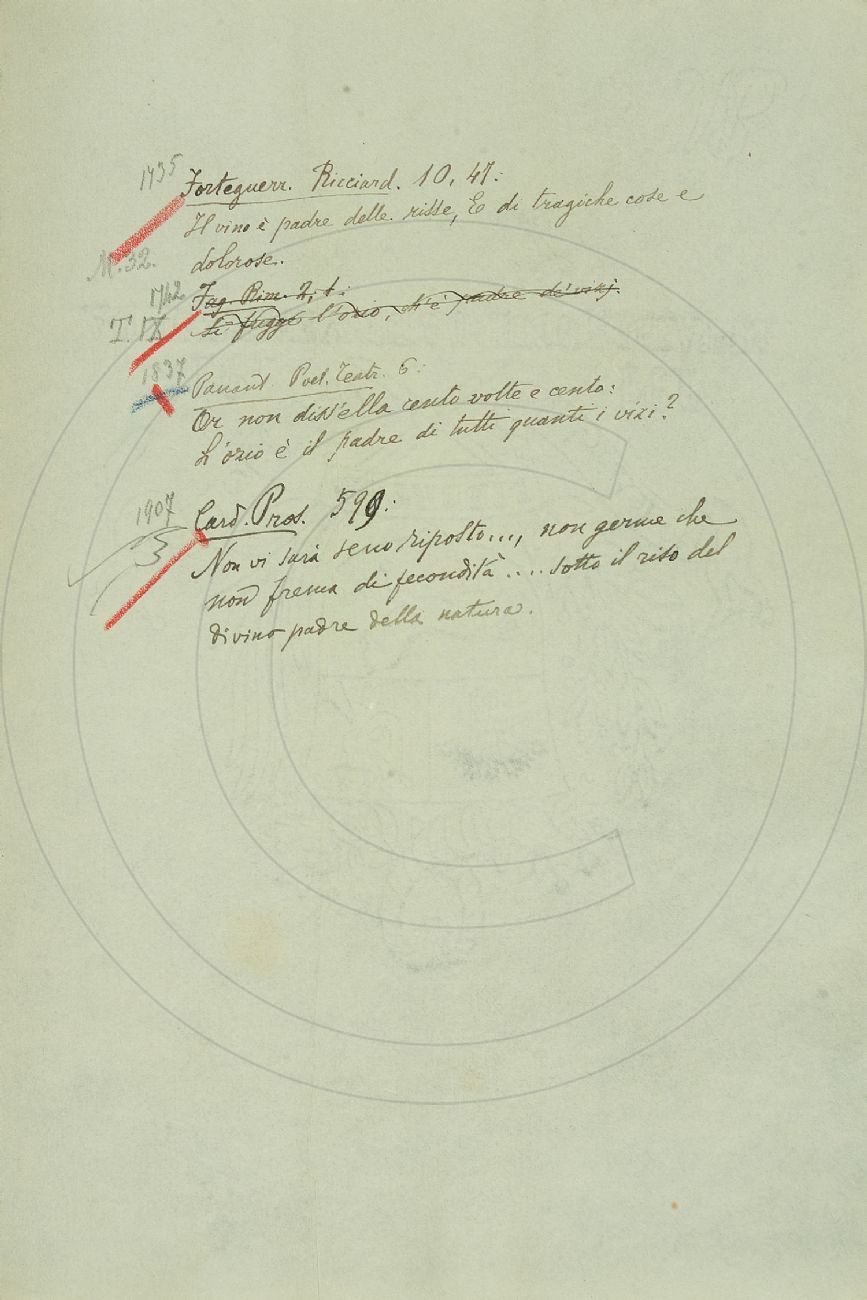 1735
Forteguerr. Ricciard. 10, 47:
Il vino è padre delle risse, E di tragiche cose e
dolorose.
M. 32.
1742
Fag. Rim. 2, 1:
T. IX
Si fugge l'ozio, ch'è padre de' vizj.
1837
Panant. Poet. Teatr. 6:
Or non diss'ella cento volte e cento:
L'ozio è il padre di tutti quanti i vizi?
1907
Card. Pros. 599:
3
Non vi sarà seno riposto..., non germe che
non frema di fecondità .... sotto il riso del
divino padre della natura.